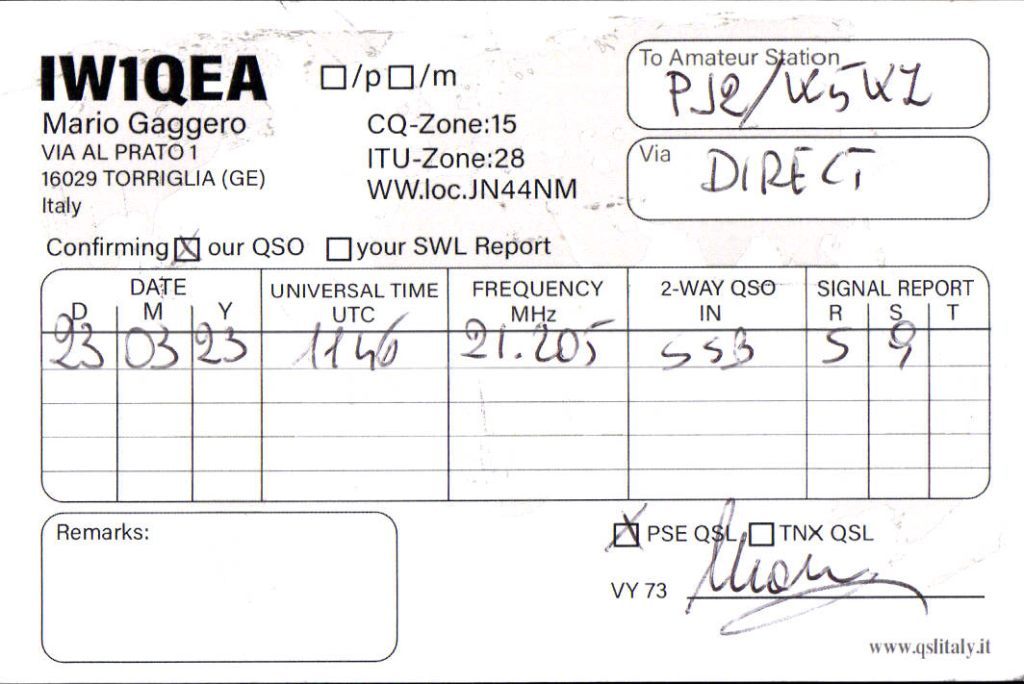 IW1QEA □/p □/m
Mario Gaggero
VIA AL PRATO 1
16029 TORRIGLIA (GE)
Italy
CQ-Zone:15
ITU-Zone:28
WW.loc.JN44NM
To Amateur Station
PJ2/W5WZ
Via DIRECT
Confirming ☒ our QSO □ your SWL Report
DATE UNIVERSAL TIME FREQUENCY 2-WAY QSO SIGNAL REPORT
D M Y UTC MHz IN R S T
23 03 23 1146 21.205 SSB 5 9
Remarks:
☒ PSE QSL □ TNX QSL
VY 73
www.qslitaly.it